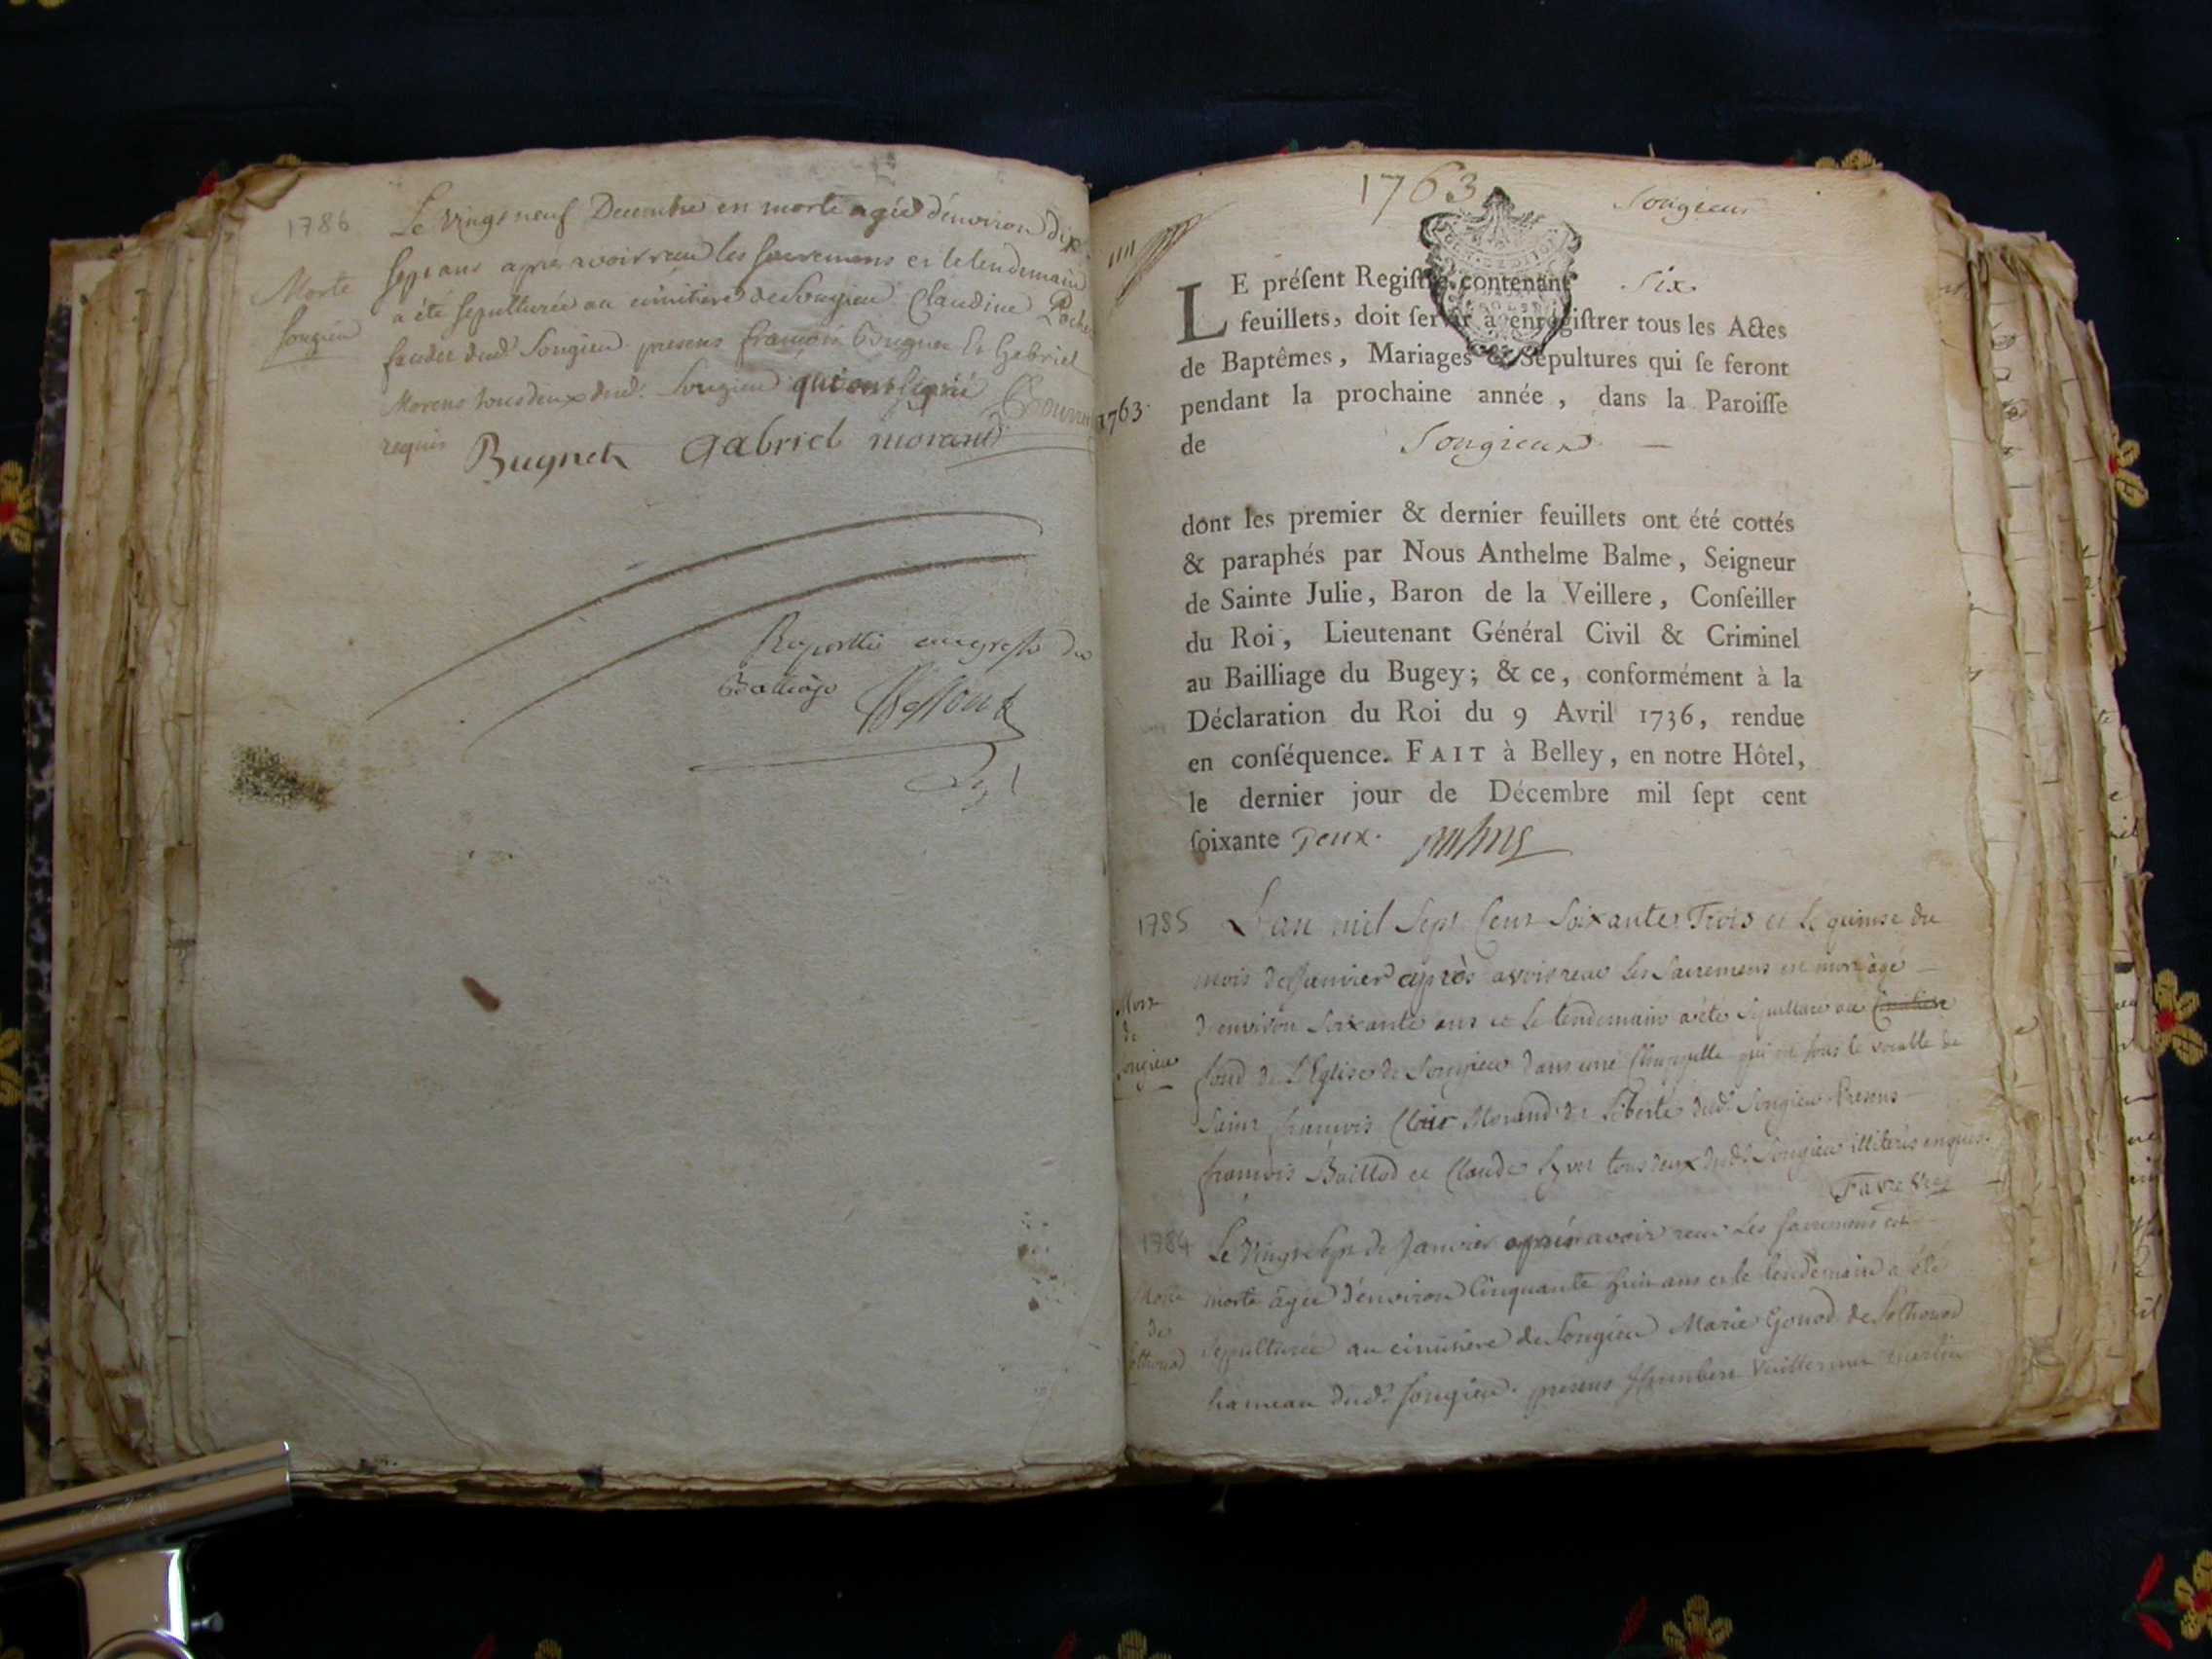 1786
Le vingt neuf Decembre est morte agée d'environ dix
sept ans apres avoir recu les sacremens et le lendemain
Morte
a été sepulturée au cimitiere de Songieu Claudine
Songieu
dud. Songieu presens françois Bougnet et Gabriel
Morens tous deux dud. Songieu qui ont signé
requis
Bugnet Gabriel morand
au greffe du
Balliage
1763
Songieu
LE préſent Regiſtre contenant Six
feuillets, doit ſervir à enrégiſtrer tous les Actes
de Baptêmes, Mariages & Sépultures qui ſe feront
pendant la prochaine année, dans la Paroiſſe
1763.
de Songieux
dont les premier & dernier feuillets ont été cottés
& paraphés par Nous Anthelme Balme, Seigneur
de Sainte Julie, Baron de la Veillere, Conſeiller
du Roi, Lieutenant Général Civil & Criminel
au Bailliage du Bugey; & ce, conformément à la
Déclaration du Roi du 9 Avril 1736, rendue
en conſéquence. FAIT à Belley, en notre Hôtel,
le dernier jour de Décembre mil ſept cent
ſoixante Deux.
1785
L'an mil Sept Cent Soixante Trois et le quinse du
mois de Janvier après avoir recu les Sacremens est mort agé
Mort
de
Songieu
d'environ Soixante ans et le lendemain a été Sepulturé au Cimitiere
fond de l'Eglise de Songieu dans une Chappelle qui est sous le vocable de
Saint françois Clair Morand de dud. Songieu Presens
françois Baillod et Claude tous deux dud. Songieu illiterés enquis.
Favre
1784
Le Vingt Sept de Janvier après avoir recu Les sacremens est
Morte
de
Sothonod
morte âgée d'environ Cinquante huit ans et le lendemain a été
sepulturée au cimitiere de Songieu Marie Gonod de Sothonod
hameau dud. Songieu. presens Humbert Vuillermet